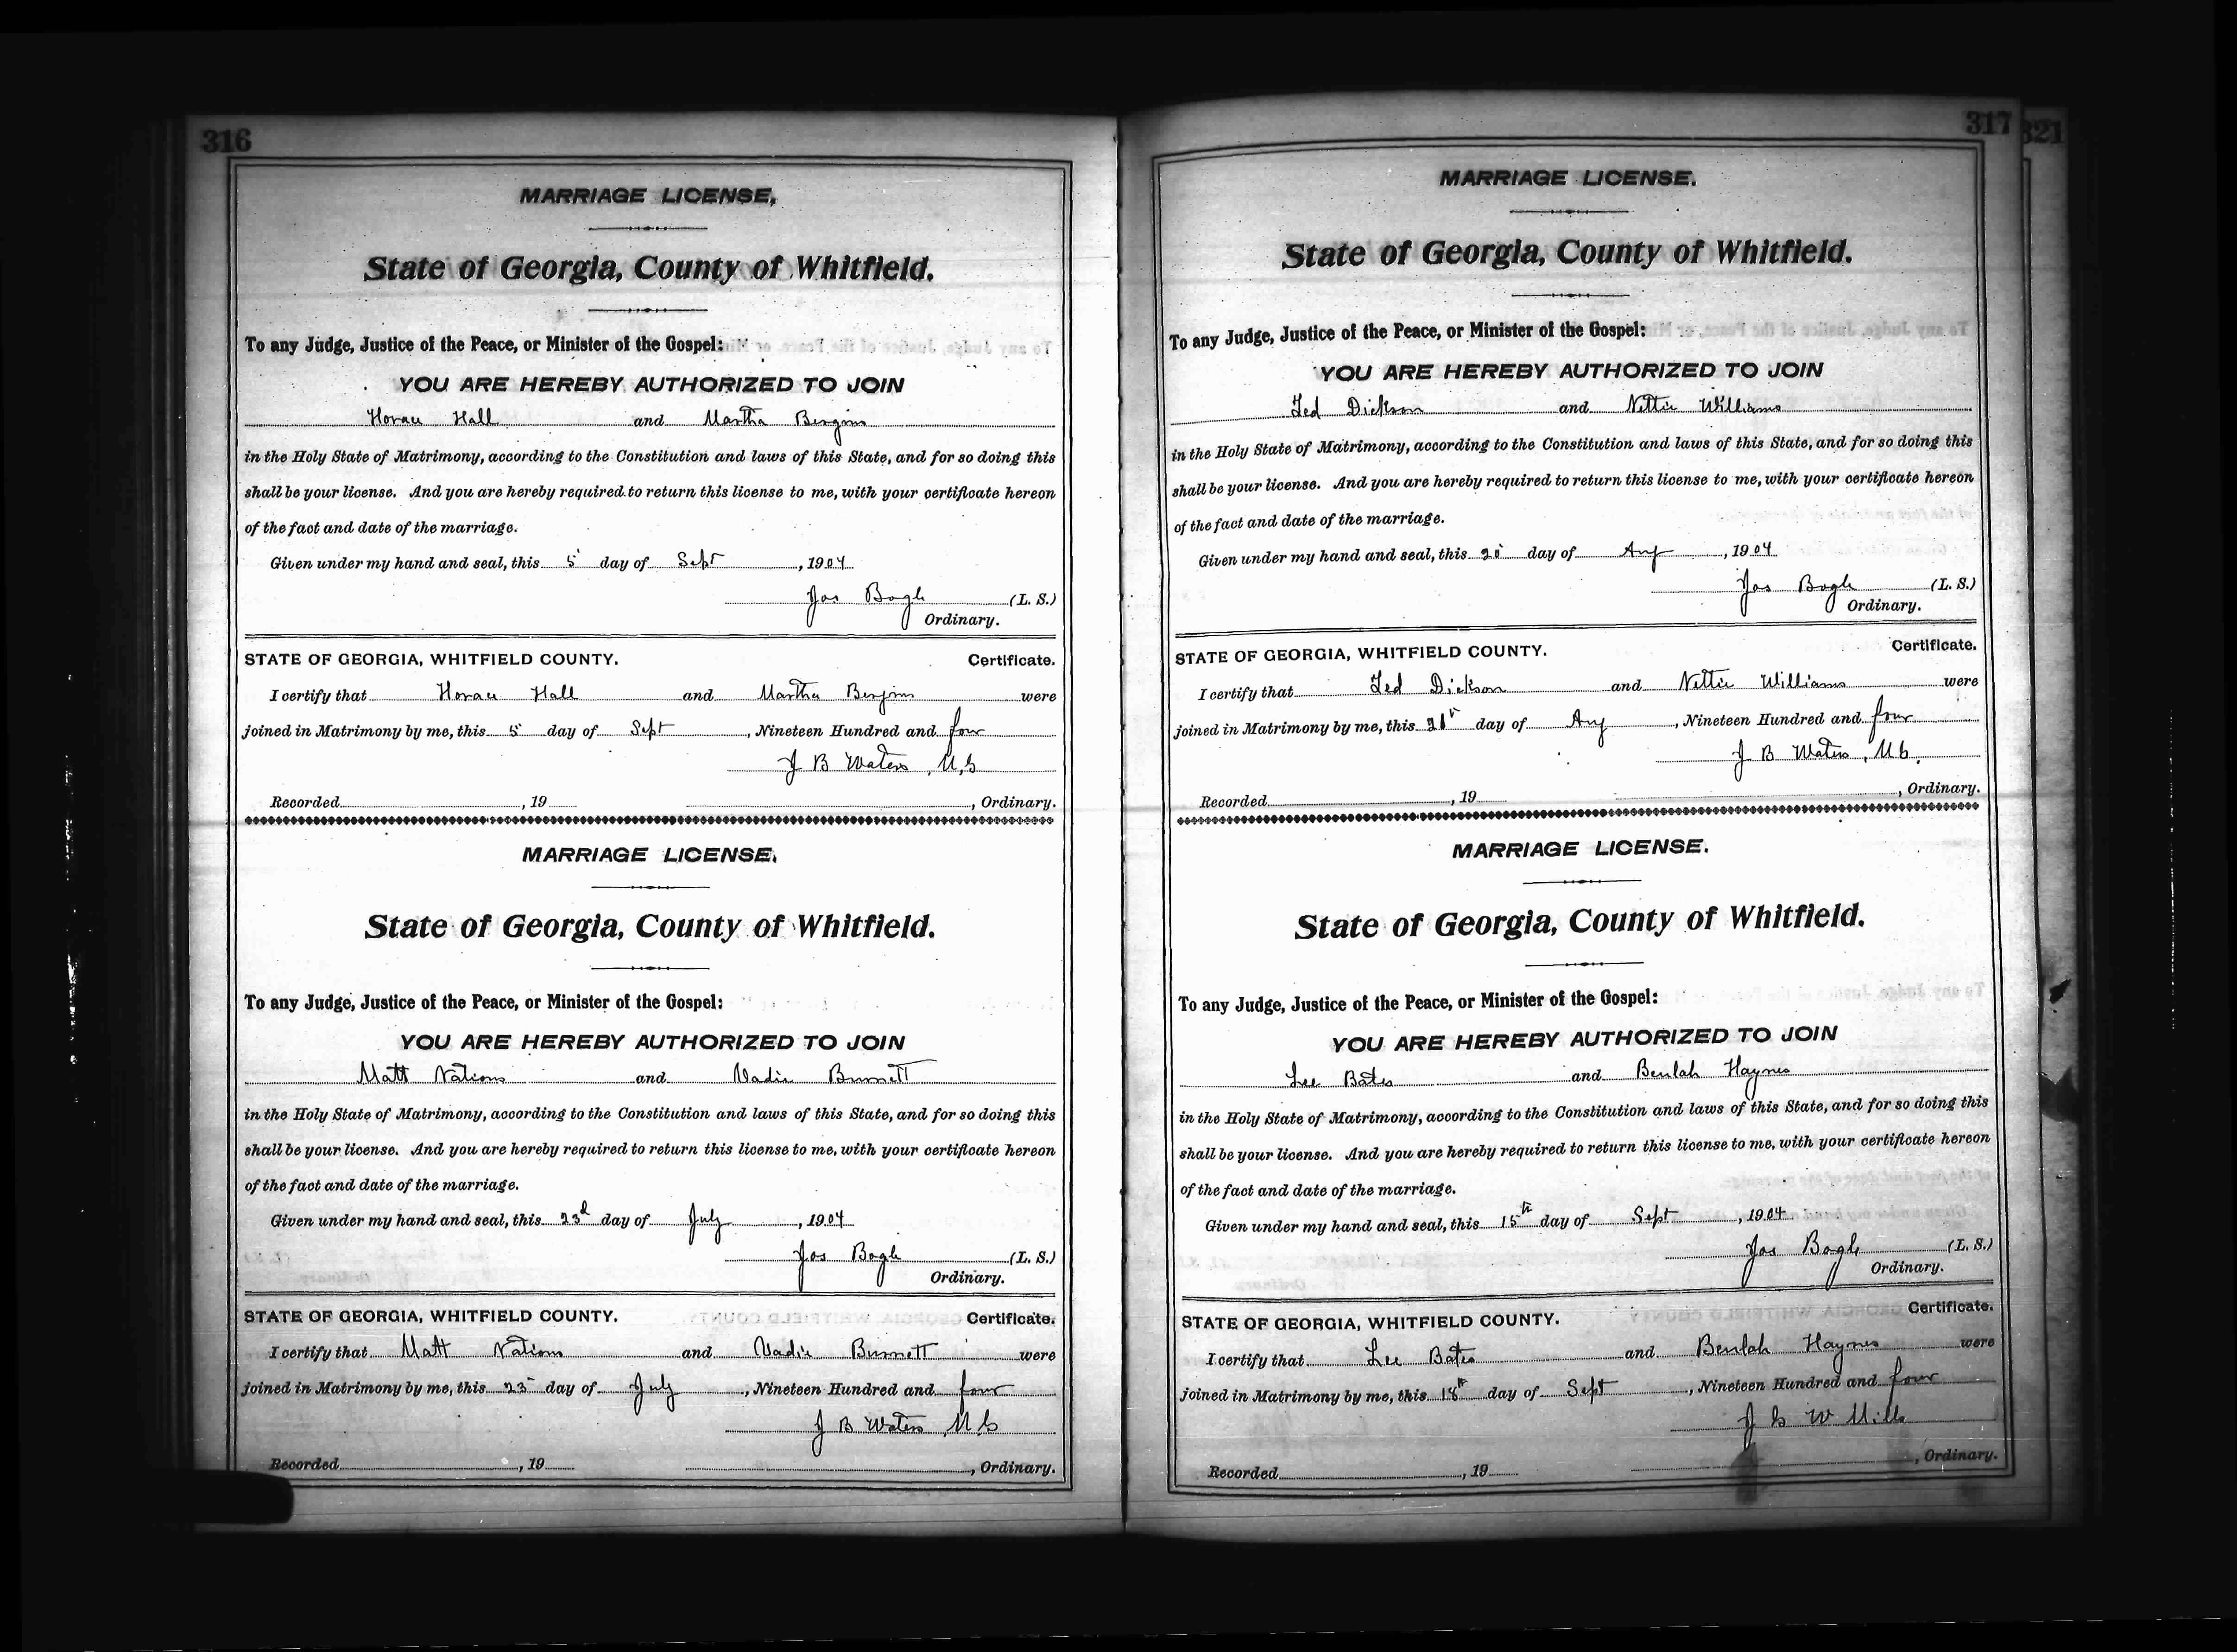 316
MARRIAGE LICENSE,
State of Georgia, County of Whitfield.
To any Judge, Justice of the Peace, or Minister of the Gospel:
YOU ARE HEREBY AUTHORIZED TO JOIN
Horace Hall and Martha
in the Holy State of Matrimony, according to the Constitution and laws of this State, and for so doing this
shall be your license. And you are hereby required to return this license to me, with your certificate hereon
of the fact and date of the marriage.
Given under my hand and seal, this 5 day of Sept, 1904
Jas Bogle (L. S.)
Ordinary.
STATE OF GEORGIA, WHITFIELD COUNTY. Certificate.
I certify that Horace Hall and Martha were
joined in Matrimony by me, this 5 day of Sept, Nineteen Hundred and four
J B Waters, M.G
Recorded , 19 , Ordinary.
MARRIAGE LICENSE.
State of Georgia, County of Whitfield.
To any Judge, Justice of the Peace, or Minister of the Gospel:
YOU ARE HEREBY AUTHORIZED TO JOIN
Matt Nations and Burnett
in the Holy State of Matrimony, according to the Constitution and laws of this State, and for so doing this
shall be your license. And you are hereby required to return this license to me, with your certificate hereon
of the fact and date of the marriage.
Given under my hand and seal, this 23d day of July, 1904
Jas Bogle (L. S.)
Ordinary.
STATE OF GEORGIA, WHITFIELD COUNTY. Certificate.
I certify that Matt Nations and Burnett were
joined in Matrimony by me, this 23 day of July, Nineteen Hundred and four
J B Waters, M G
Recorded , 19 , Ordinary.
317
321
MARRIAGE LICENSE.
State of Georgia, County of Whitfield.
To any Judge, Justice of the Peace, or Minister of the Gospel:
YOU ARE HEREBY AUTHORIZED TO JOIN
Ted Dickson and Nettie Williams
in the Holy State of Matrimony, according to the Constitution and laws of this State, and for so doing this
shall be your license. And you are hereby required to return this license to me, with your certificate hereon
of the fact and date of the marriage.
Given under my hand and seal, this day of Aug, 1904
Jas Bogle (L. S.)
Ordinary.
STATE OF GEORGIA, WHITFIELD COUNTY. Certificate.
I certify that Ted Dickson and Nettie Williams were
joined in Matrimony by me, this day of Aug, Nineteen Hundred and four
J B Waters, M G.
Recorded , 19 , Ordinary.
MARRIAGE LICENSE.
State of Georgia, County of Whitfield.
To any Judge, Justice of the Peace, or Minister of the Gospel:
YOU ARE HEREBY AUTHORIZED TO JOIN
Lee Bates and Beulah Haynes
in the Holy State of Matrimony, according to the Constitution and laws of this State, and for so doing this
shall be your license. And you are hereby required to return this license to me, with your certificate hereon
of the fact and date of the marriage.
Given under my hand and seal, this 15th day of Sept, 1904
Jas Bogle (L. S.)
Ordinary.
STATE OF GEORGIA, WHITFIELD COUNTY. Certificate.
I certify that Lee Bates and Beulah Haynes were
joined in Matrimony by me, this 18th day of Sept, Nineteen Hundred and four
J G W Mills
Recorded , 19 , Ordinary.